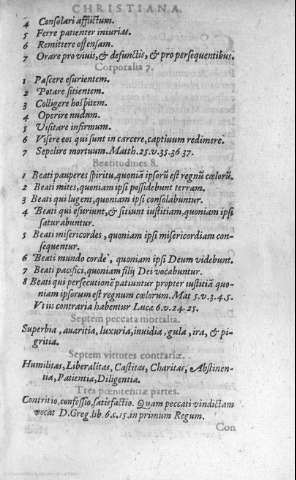 CHRISTIANA.
4 Consolari afflictum.
5 Ferre patienter iniurias.
6 Remittere offensam.
7 Orare pro viuis, & defunctis, & pro persequentibus.
Corporalia 7.
1 Pascere esurientem.
2 Potare sitientem.
3 Colligere hospitem.
4 Operire nudum.
5 Visitare infirmum.
6 Visere eos qui sunt in carcere, captiuum redimere.
7 Sepelire mortuum. Matth. 25. v. 35. 36 37.
Beatitudines 8.
1 Beati pauperes spiritu, quoniā ipsorū est regnū cœlorū.
2 Beati mites, quoniam ipsi possidebunt terram.
3 Beati qui lugent, quoniam ipsi consolabuntur.
4 Beati qui esuriunt, & sitiunt iustitiam, quoniam ipsi
saturabuntur.
5 Beati misericordes, quoniam ipsi misericordiam con-
sequentur.
6 Beati mundo corde, quoniam ipsi Deum videbunt.
7 Beati pacifici, quoniam filij Dei vocabuntur.
8 Beati qui persecutionē patiuntur propter iustitiā quo-
niam ipsorum est regnum cœlorum. Mat 5. v. 3. 4. 5.
Vt iis contraria habentur Luca 6. v. 24. 25.
Septem peccata mortalia.
Superbia, auaritia, luxuria, inuidia, gula, ira, & pi-
gritia.
Septem virtutes contrariæ.
Humilitas, Liberalitas, Castitas, Charitas, Abstinen-
tia, Patientia, Diligentia.
Tres pœnitentiæ partes.
Contritio, confessio, satisfactio. Quam peccati vindictam
vocat D. Greg. lib. 6. c. 15. in primum Regum.
Con